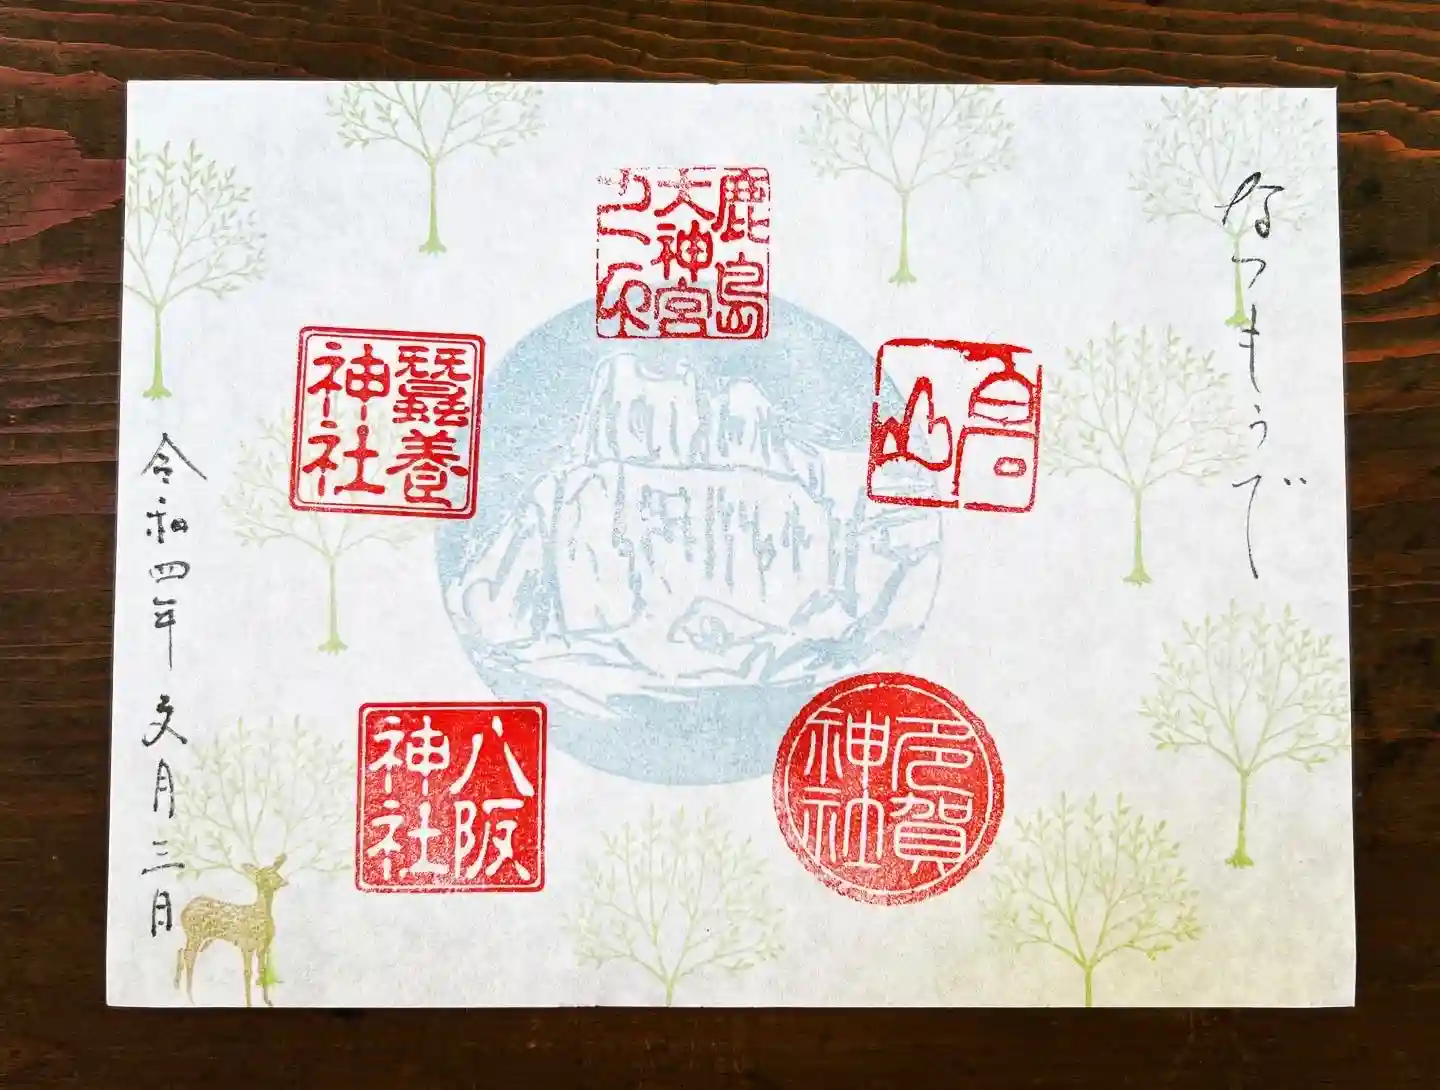 なつもうで
鹿島
大神宮
蠶養
神社
多賀
神社
八阪
神社
令和四年 文月三日